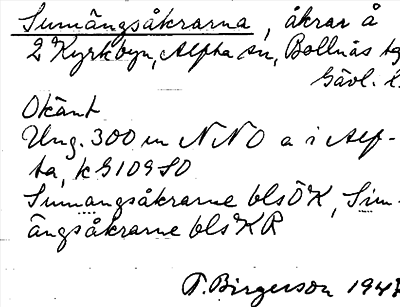 Sumängsåkrarna, åkrar å
2 Kyrkbyn, Alfta sn, Bollnäs tg
Gävl. l.
Okänt
Ung. 300 m NNO a i Alf-
ta, k G109 SO
Sumangsåkrarne bls ÖK, Sim-
ängsåkrarne bls KR
T. Birgerson 194